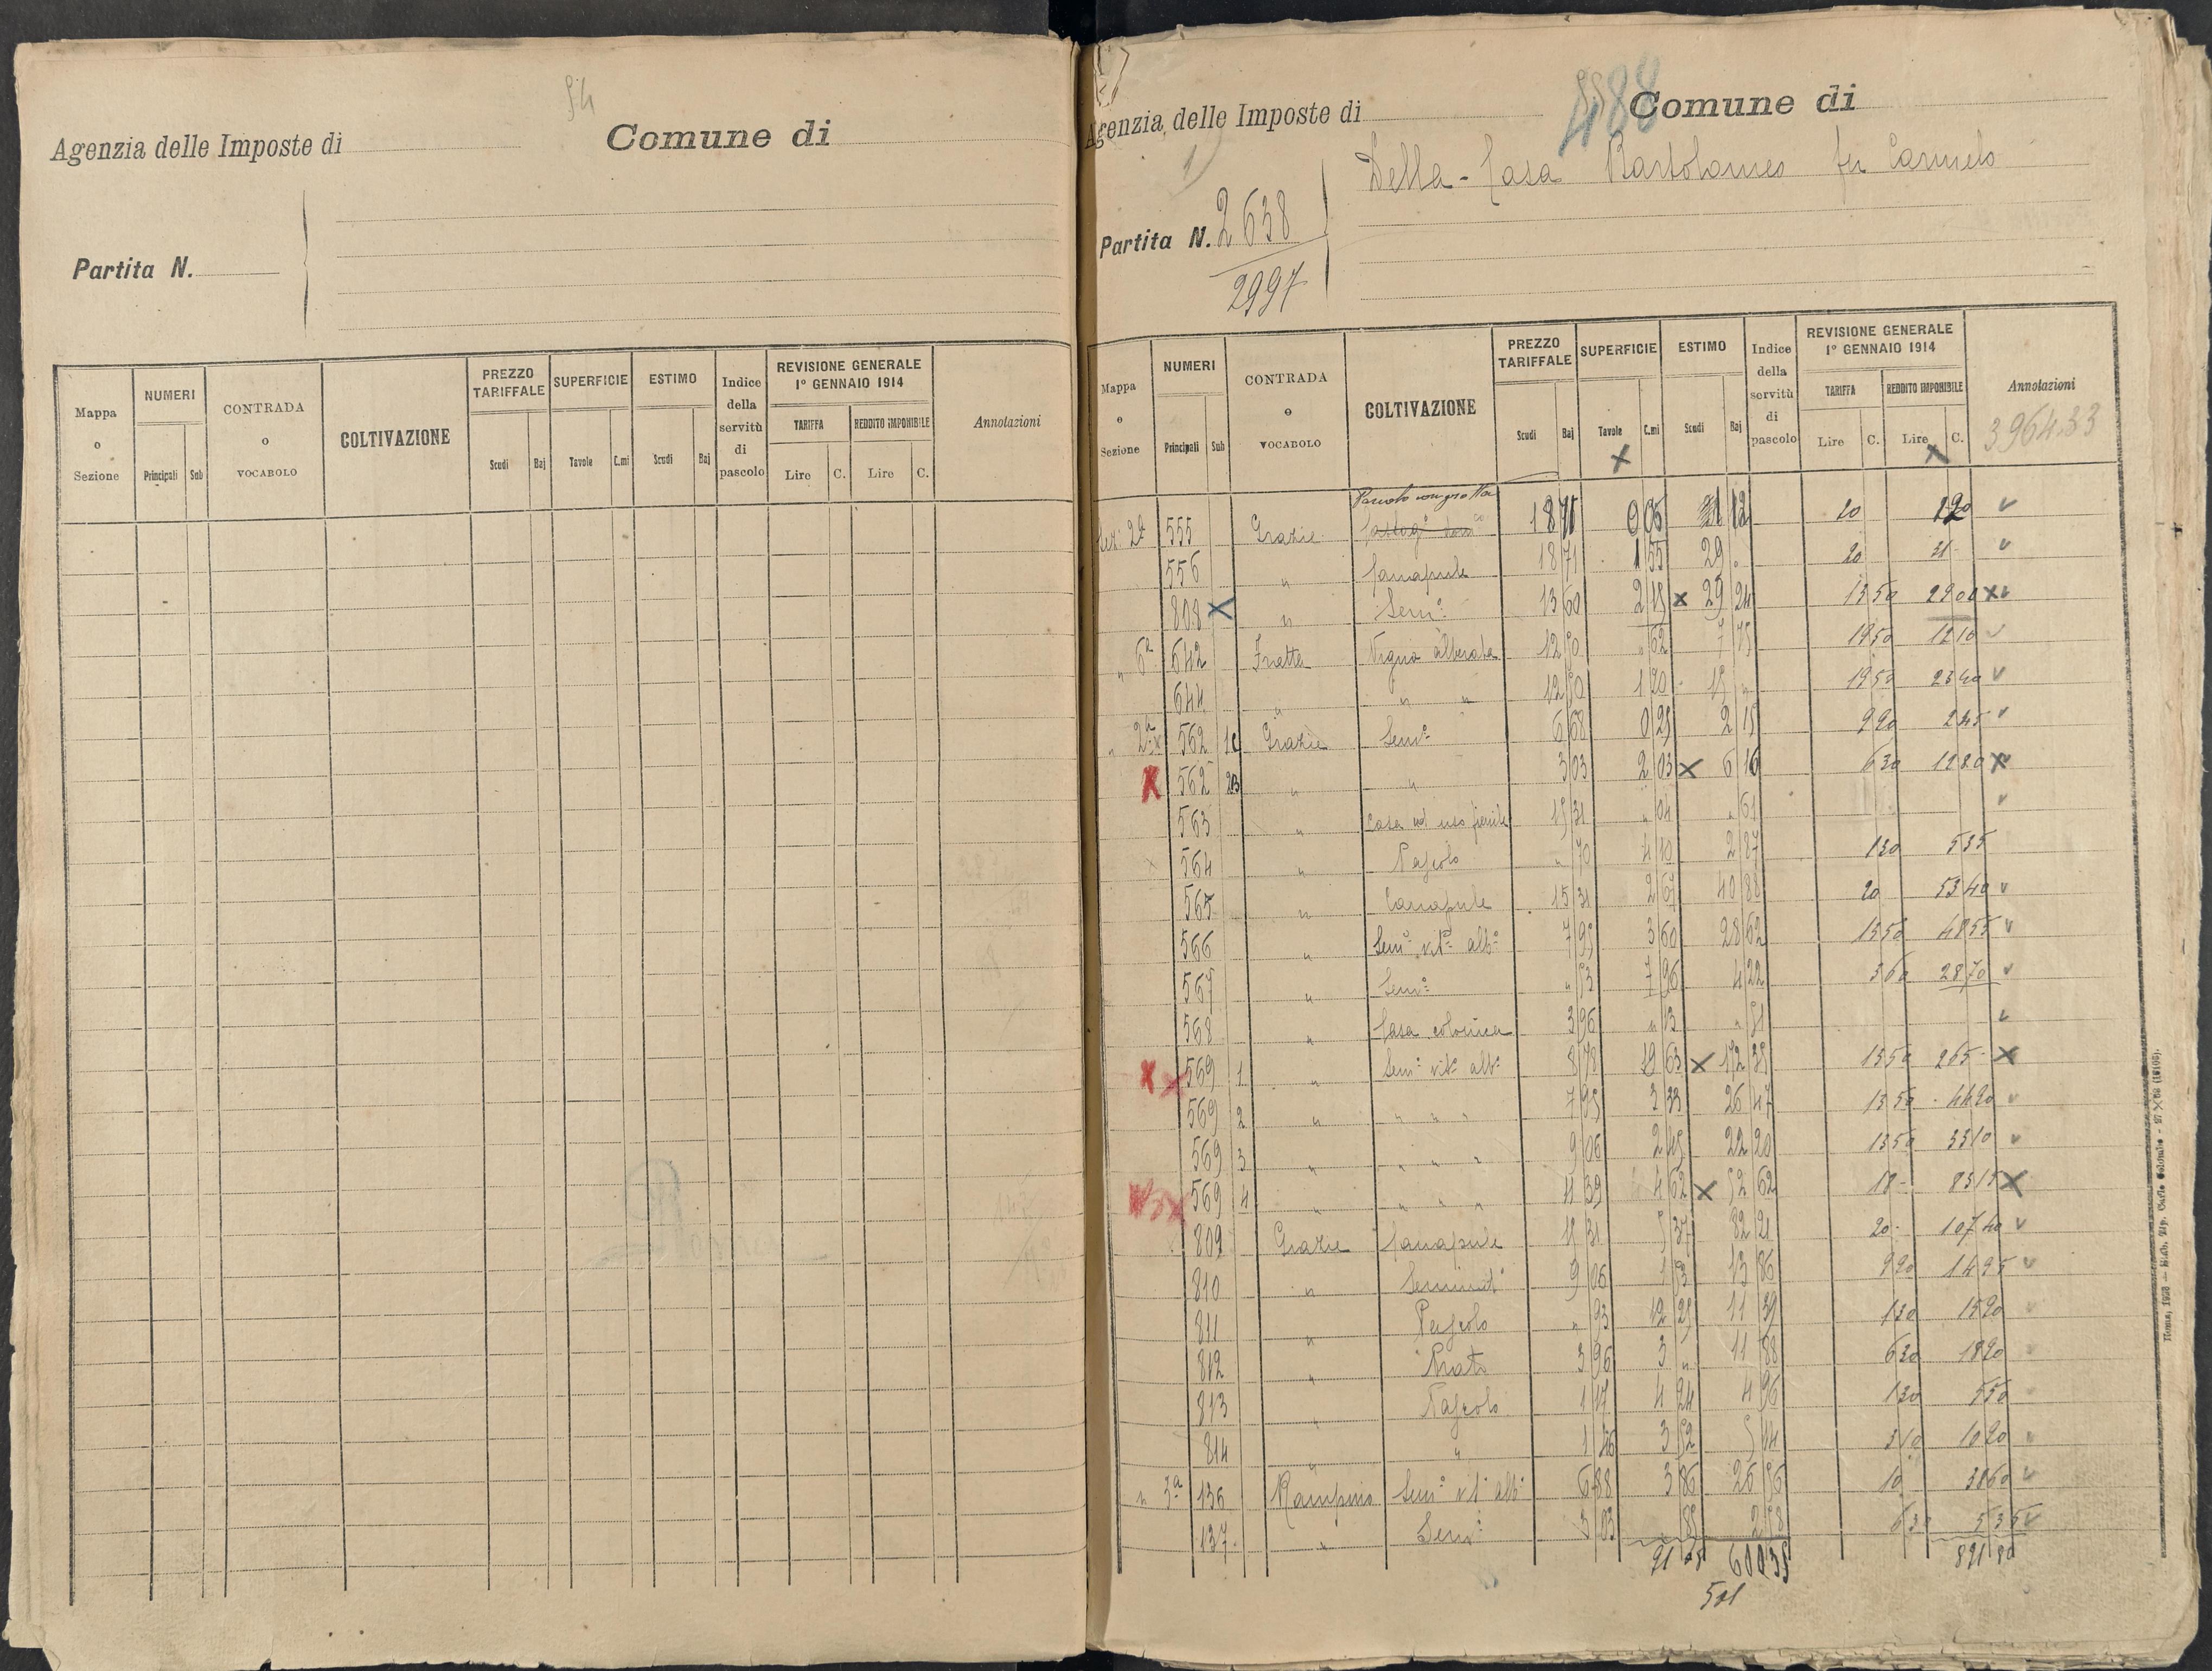 54
Agenzia delle Imposte di Comune di
Partita N.
Mappa o Sezione
NUMERI
Principali Sub
CONTRADA o VOCABOLO
COLTIVAZIONE
PREZZO TARIFFALE
Scudi Baj
SUPERFICIE
Tavole C.mi
ESTIMO
Scudi Baj
Indice della servitù di pascolo
REVISIONE GENERALE 1° GENNAIO 1914
TARIFFA
Lire C.
REDDITO IMPONIBILE
Lire C.
Annotazioni
488
Agenzia delle Imposte di Comune di
1)
Della-Casa Bartolomeo fu Carmelo
Partita N. 2638
2997
Mappa o Sezione
NUMERI
Principali Sub
CONTRADA o VOCABOLO
COLTIVAZIONE
PREZZO TARIFFALE
Scudi Baj
SUPERFICIE
Tavole C.mi
ESTIMO
Scudi Baj
Indice della servitù di pascolo
REVISIONE GENERALE 1° GENNAIO 1914
TARIFFA
Lire C.
REDDITO IMPONIBILE
Lire C.
Annotazioni
3964.33
Sez. 2ª 555 Grazie 18 71 0 06 12 20 1 20 v
556 " Canapule 18 71 1 55 29 . 20 31 - v
808 X " Sem.° 13 60 2 15 x 29 24 13 50 29 00 x v
" 6ª 642 Fratte Vigna alberata 12 50 " 62 7 75 19 50 12 10 v
644 " " " 12 50 1 20 15 " 19 50 23 40 v
" 2ª 562 1 Grazie Sem.° 6 68 0 25 9 90 2 45 v
X 562 2 " " 3 03 2 03 x 6 16 6 30 12 80 x
563 " Casa ad uso fienile 15 31 " 04 " 61 v
564 " Pascolo " 70 4 10 2 87 1 30 5 35
565 " Canapule 15 31 2 67 40 88 20 53 40 v
566 " Sem.° vit.° alb.° 7 95 3 60 28 62 13 50 48 55 v
567 " Sem.° " 53 7 96 4 22 3 60 28 70 v
568 " Casa colonica 3 96 " 13 " 51 v
X X 569 1 " Sem.° vit.° alb.° 8 78 19 63 x 172 35 13 50 265 - x
569 2 " " " " 7 95 3 33 26 47 13 50 44 90 v
569 3 " " " " 9 06 2 45 22 20 13 50 33 10 v
569 4 " " " " 11 39 4 62 x 52 62 18 - 83 15 x
809 Grazie Canapule 15 31 5 37 82 21 20 - 107 40 v
810 " Seminat.° 9 06 1 53 13 86 9 90 14 95 v
811 " Pascolo " 93 12 25 11 39 1 30 15 90
812 " Prato 3 96 3 " 11 88 6 30 18 90
813 " Pascolo 1 17 4 24 4 96 1 30 5 50
814 " " 3 52 3 10 10 90
" 3ª 136 Rampino Sem.° vit.° alb.° 6 88 3 86 26 56 10 38 60 v
137 " Sem.° 3 03 85 2 58 6 30 5 35 v
600 35
891 80
Roma, 1908 — Stab. Tip. Carlo Colombo